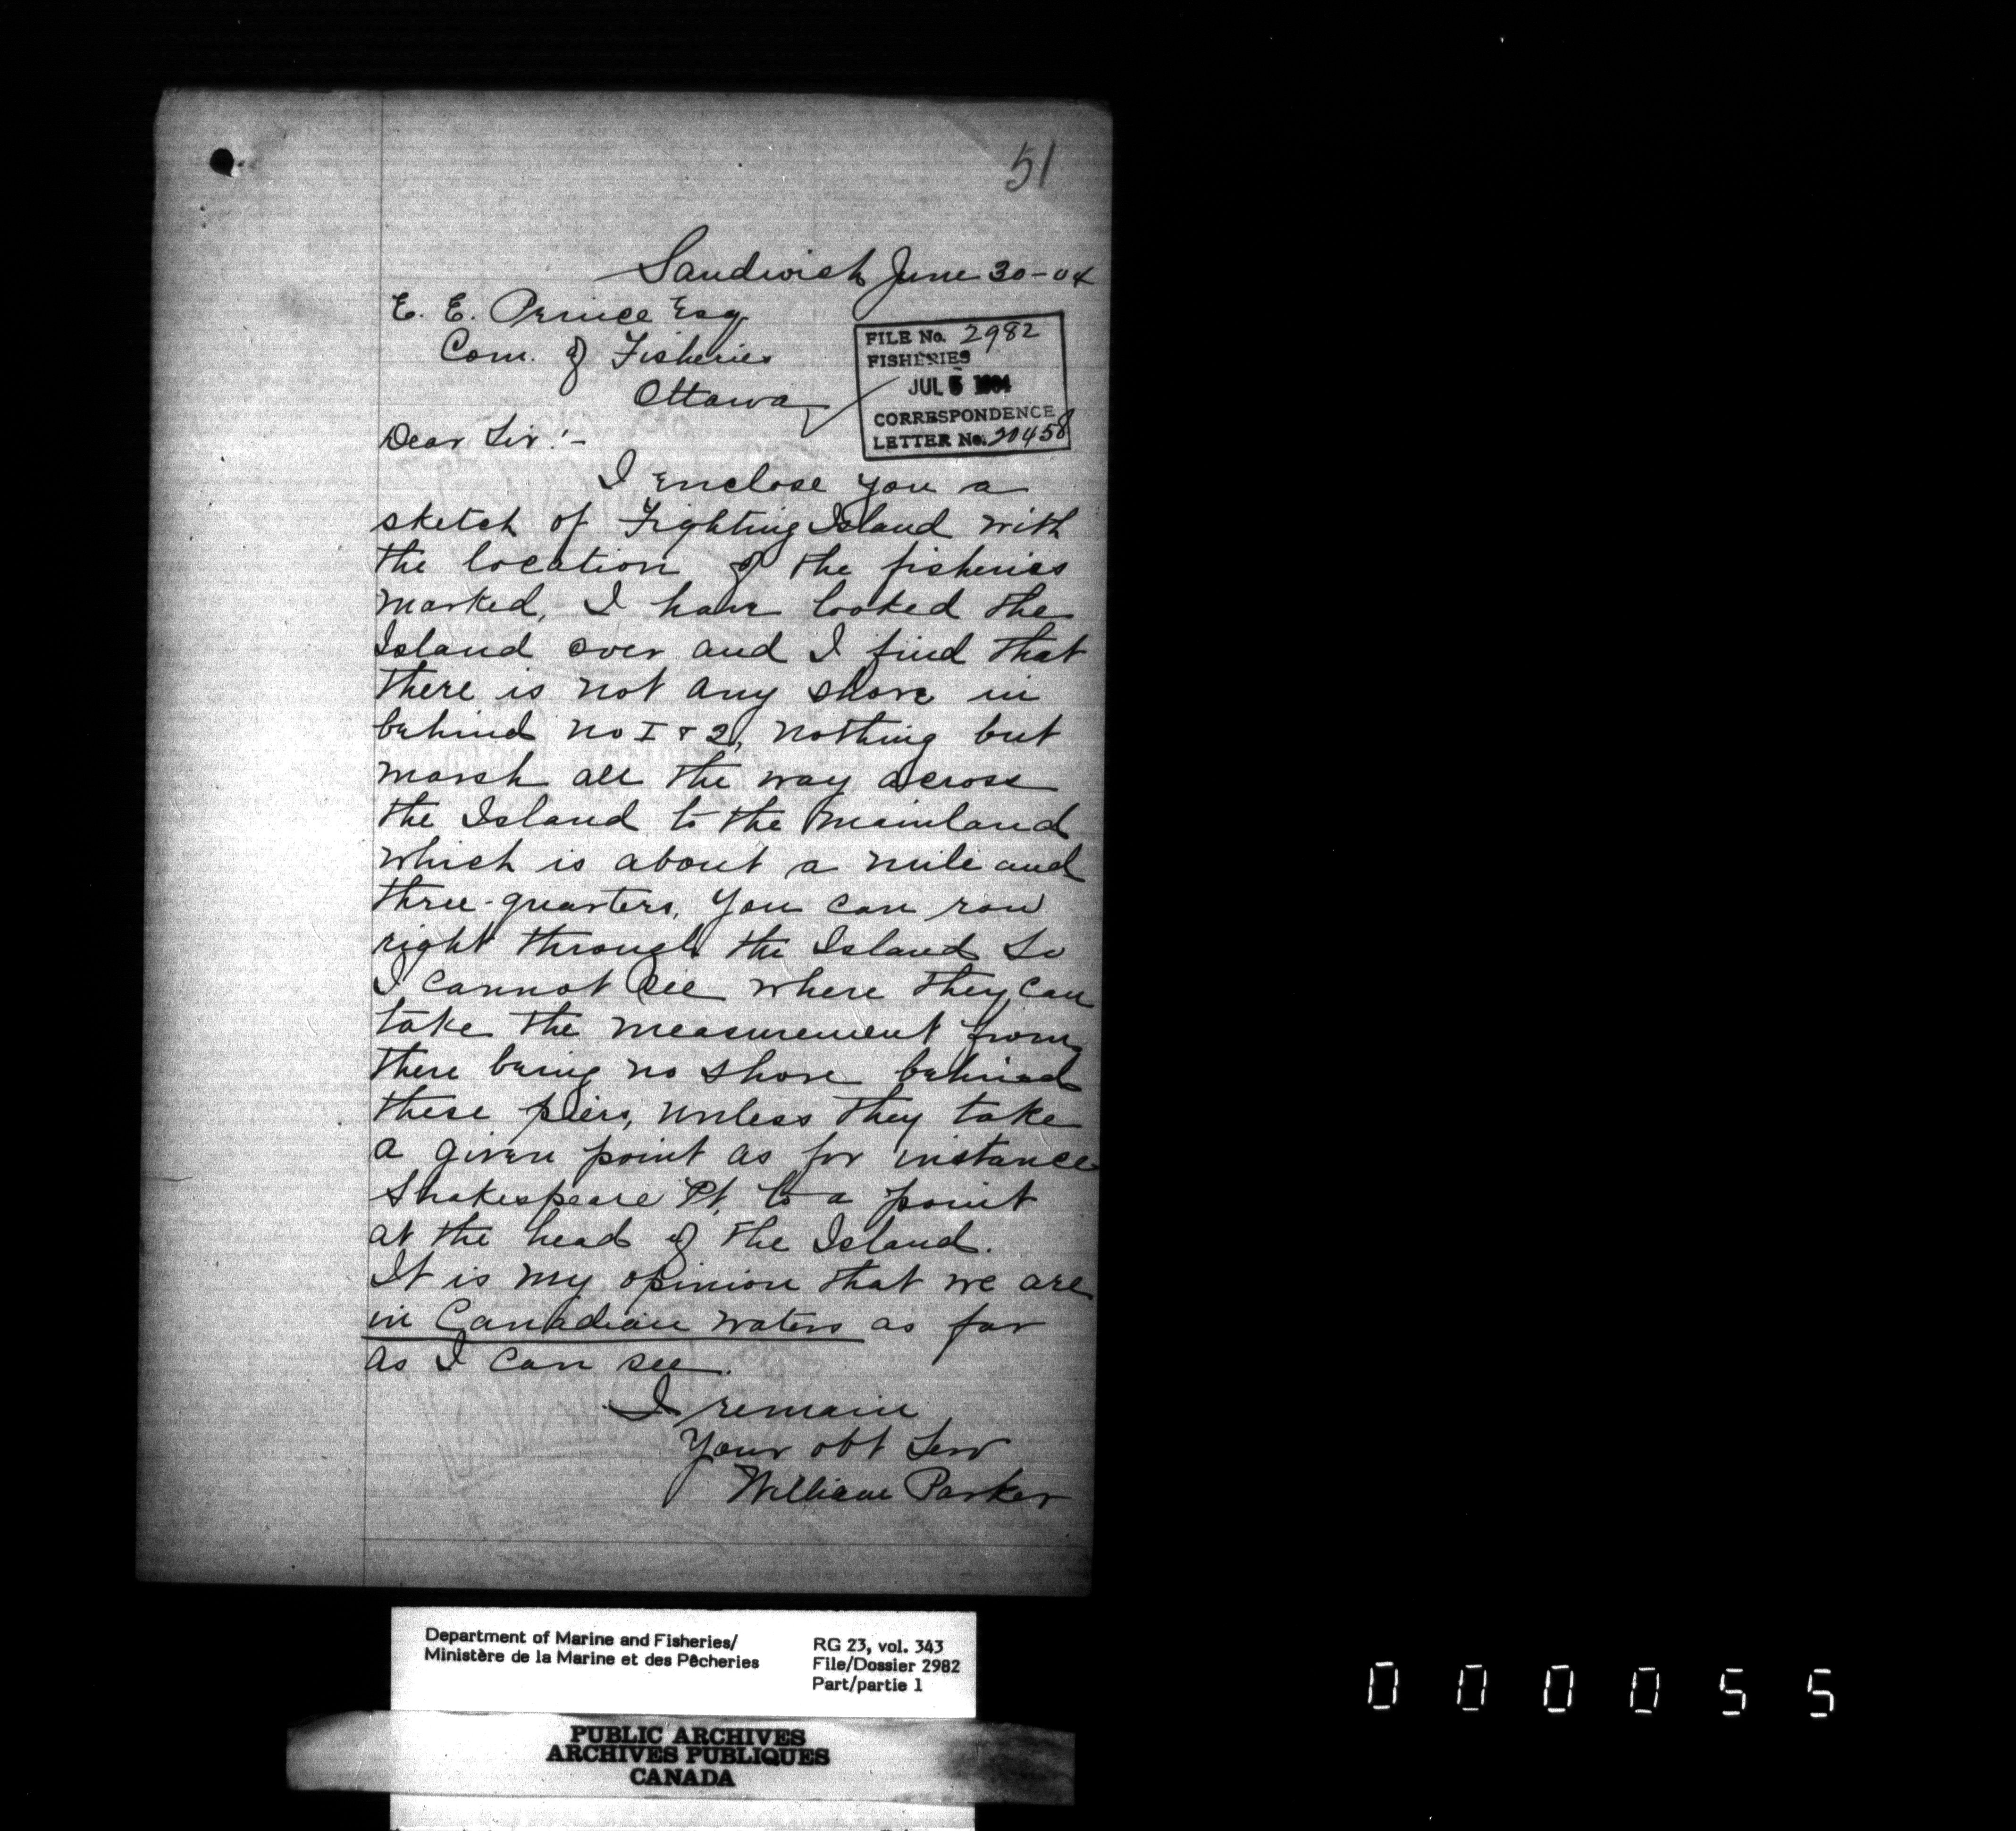 51
Sandwich June 30-04
E. E. Prince Esq
Com. of Fisheries
Ottawa
FILE No. 2982
FISHERIES
JUL 5 1904
CORRESPONDENCE
LETTER No. 20458
Dear Sir:-
I enclose you a
sketch of Fighting Island with
the location of the fisheries
marked, I have looked the
Island over and I find that
there is not any shore in
behind no I & 2, nothing but
marsh all the way across
the Island to the mainland
which is about a mile and
three-quarters, you can row
right through the Island so
I cannot see where they can
take the measurement from,
there being no shore behind
these piers, unless they take
a given point as for instance
Shakespeare Pt, to a point
at the head of the Island.
It is my opinion that we are
in Canadian waters as far
as I can see.
I remain
Your obt Serv
William Parker
Department of Marine and Fisheries/
Ministère de la Marine et des Pêcheries
RG 23, vol. 343
File/Dossier 2982
Part/partie 1
PUBLIC ARCHIVES
ARCHIVES PUBLIQUES
CANADA
000055